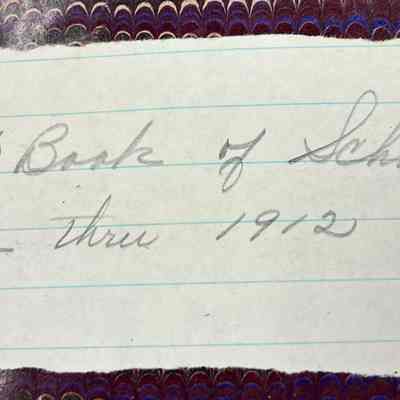 Book of Sch
thru 1912